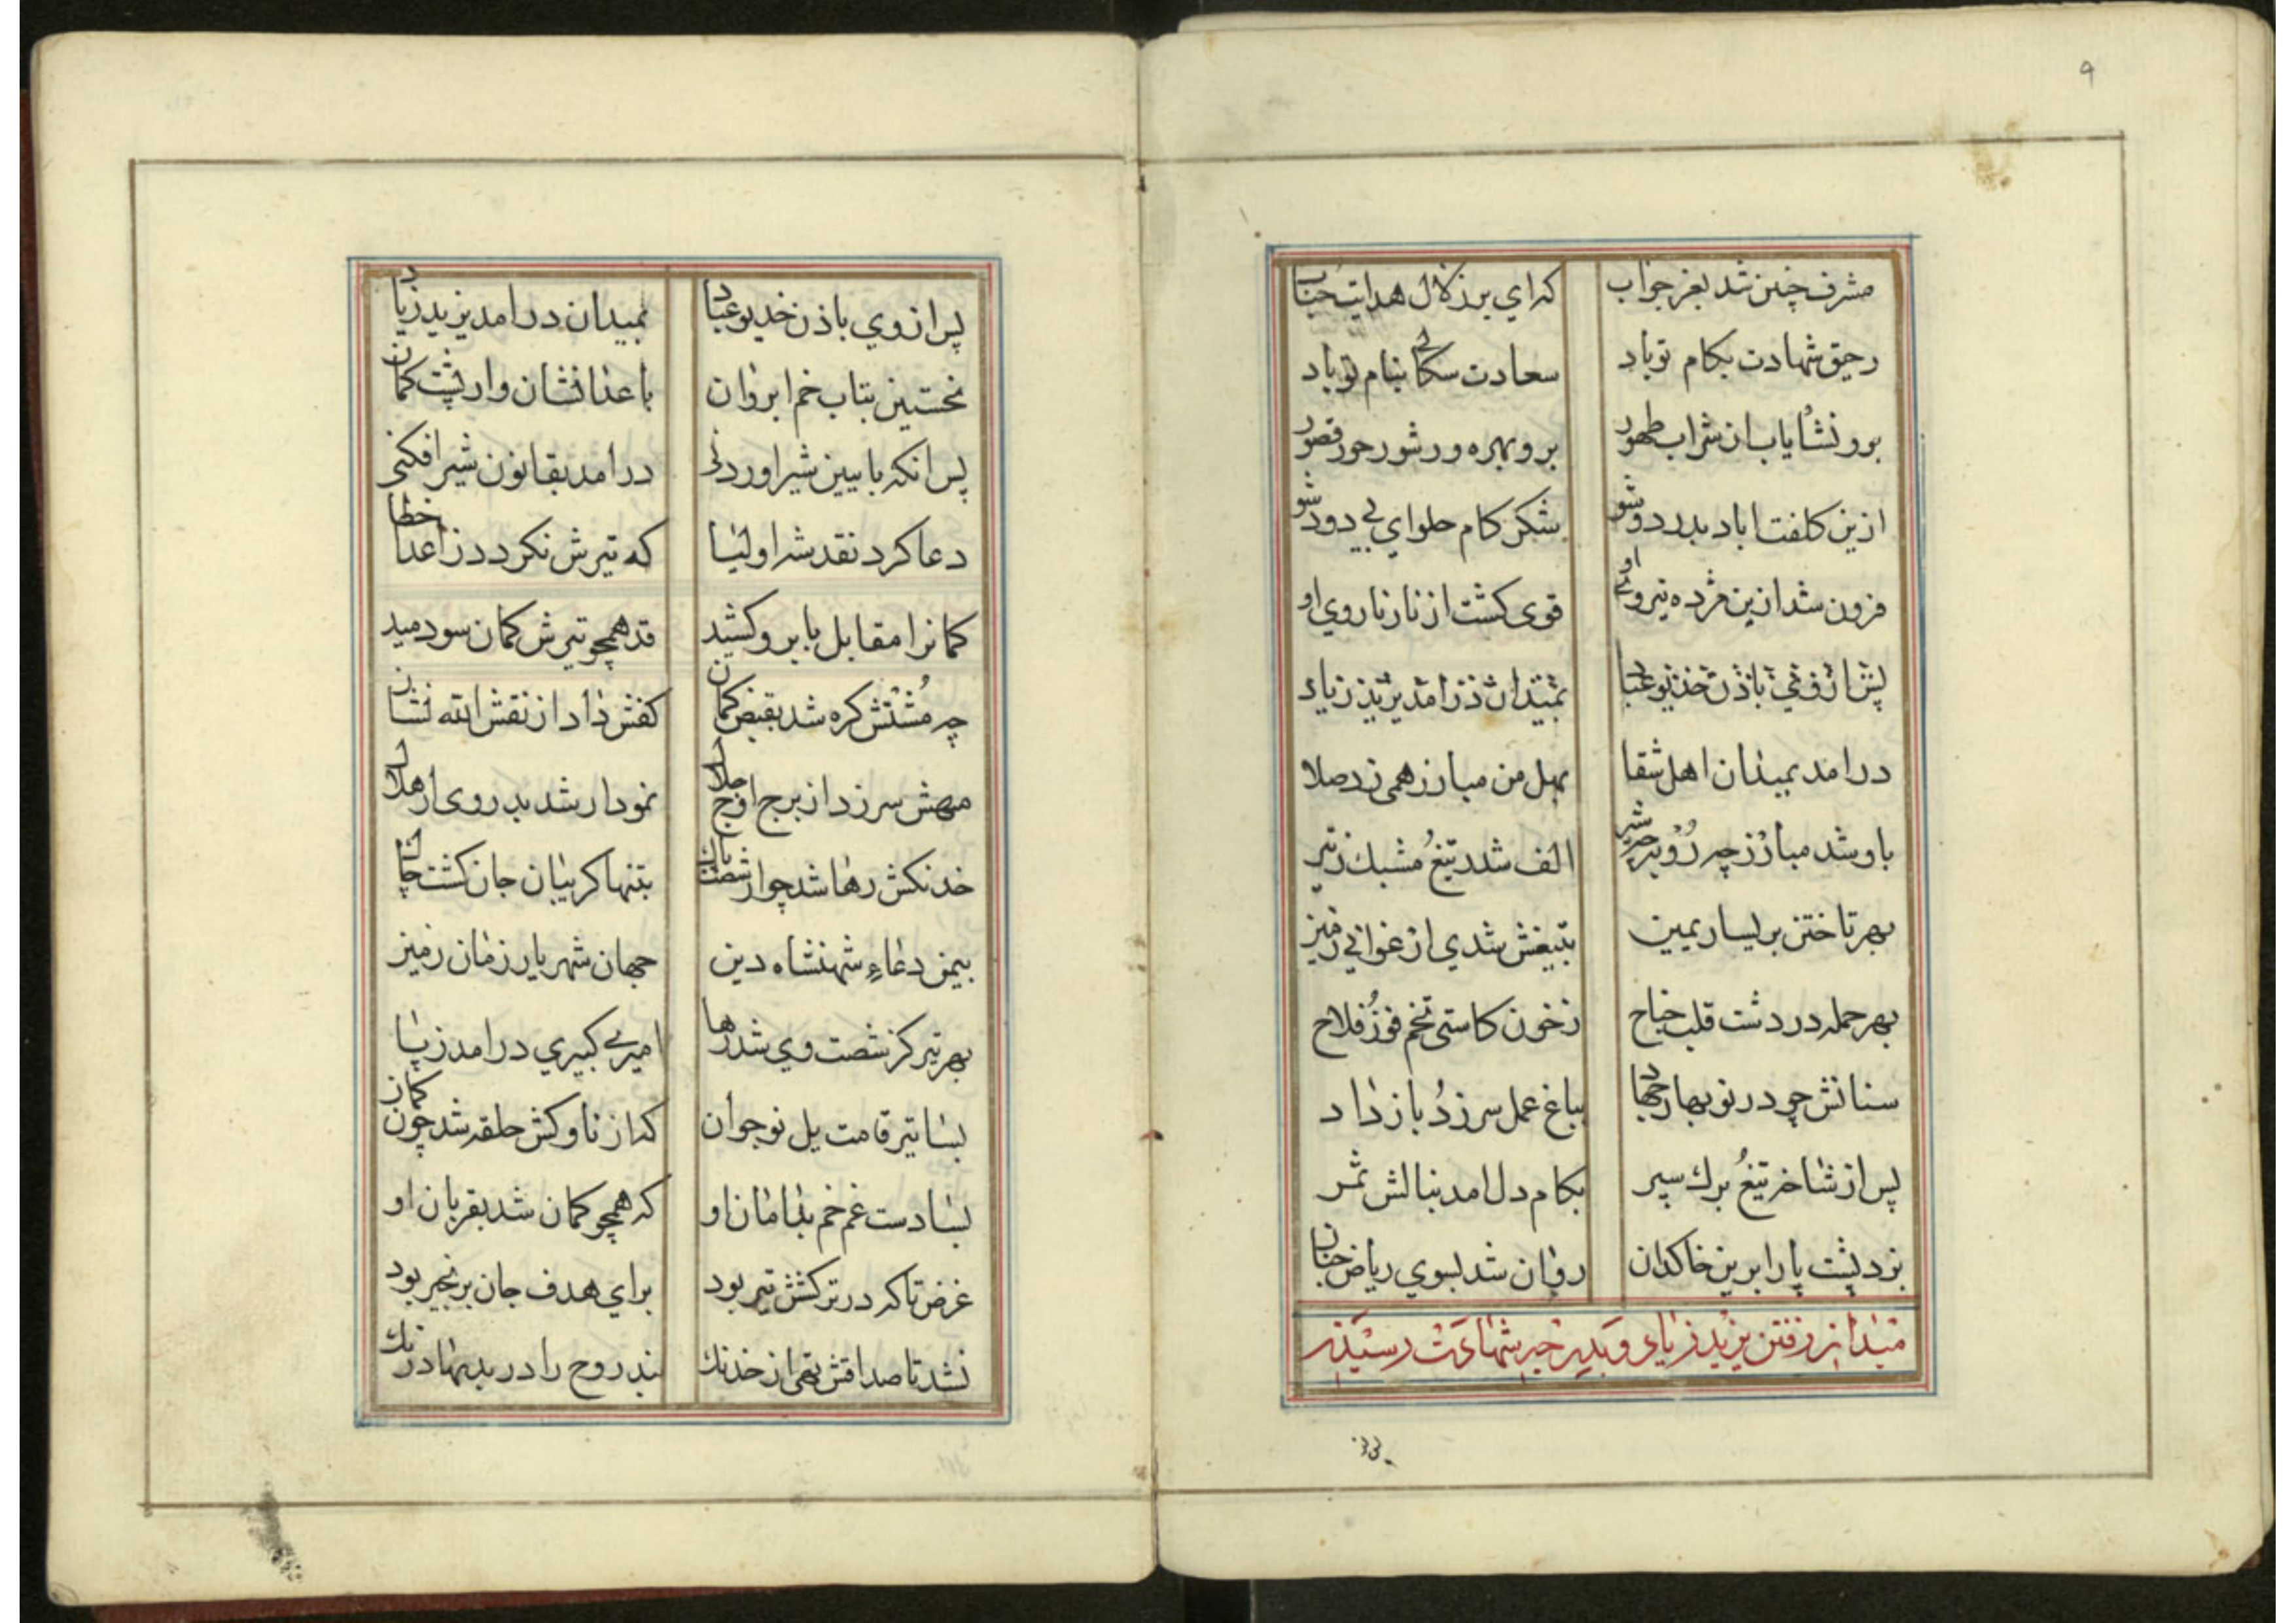 ۹
مشرف چنین شد بغز جواب که ای بر زلال هدایت حباب
رحیق شهادت بکام تو باد سعادت سکهٔ بنام تو باد
برو نشأ یاب ان شراب طهور برو بهره ور شو ز حور قصور
ازین کلفت اباد بدرد و شو بشکر کام حلوای بی دود شو
فزون شد ازین مژده نیروی او قوی کشت از ناز ناروی او
پس از وی باذن خدیو عباد بمیدان درامد یزید زیاد
درامد بمیدان اهل شقا بهل من مبارز همی زد صلا
باو شد مبارز چه رو بر چه شیر الف شد د تیغ مشبك ز تیر
بهر تاختن بر لیسار یمین بتیغش شدی ارغوانی زمین
بهر حمله در دشت قلب جناح ز خون کاستی تخم فوز فلاح
سنانش چه در نوبهار جهاد بباغ عمل سر زد باز داد
پس از شاخ تیغ برك سپر بکام دل امد نبالش ثمر
بزد پشت پا را برین خاکدان روان شد لبوی ریاض جنان
میدان رفتن یزید زیاد و بدیر خبر شهادت رسیدن
پس از
پس از وی باذن خدیو عباد بمیدان درامد یزید زیاد
نخستین بتاب خم ابروان باعدا نشان وار پشت کمان
پس انکه بایین شیراوردنی درامد بقانون شیرافکنی
دعا کرد نقد شه اولیا که تیرش نکردد ز اعدا خطا
کمانرا مقابل بابرو کشید قد همچو تیرش کمان سود مید
چه مشتش کره شد بقبض کمان کفش داد از نقش الله نشان
مهش سر زد از برج اوج جلال نمودار شد بدر وی از هلال
خدنکش رها شد چو از شصت پاك بتنها کریبان جان کشت چاك
بیمن دعاء شهنشاه دین جهان شهریار زمان زمین
بهر تیر کز شصت وی شد رها امیر کبیری درامد ز پا
بسا تیر قامت یل نوجوان که از ناوکش حلقه شد چون کمان
بسا دست غم خم بدامان او که همچو کمان شد بقربان او
غرض تا که در ترکشش تیر بود برای هدف جان برنجیر بود
نشد تا صداقش تهی از خدنك بند روح را در بدنها درنك